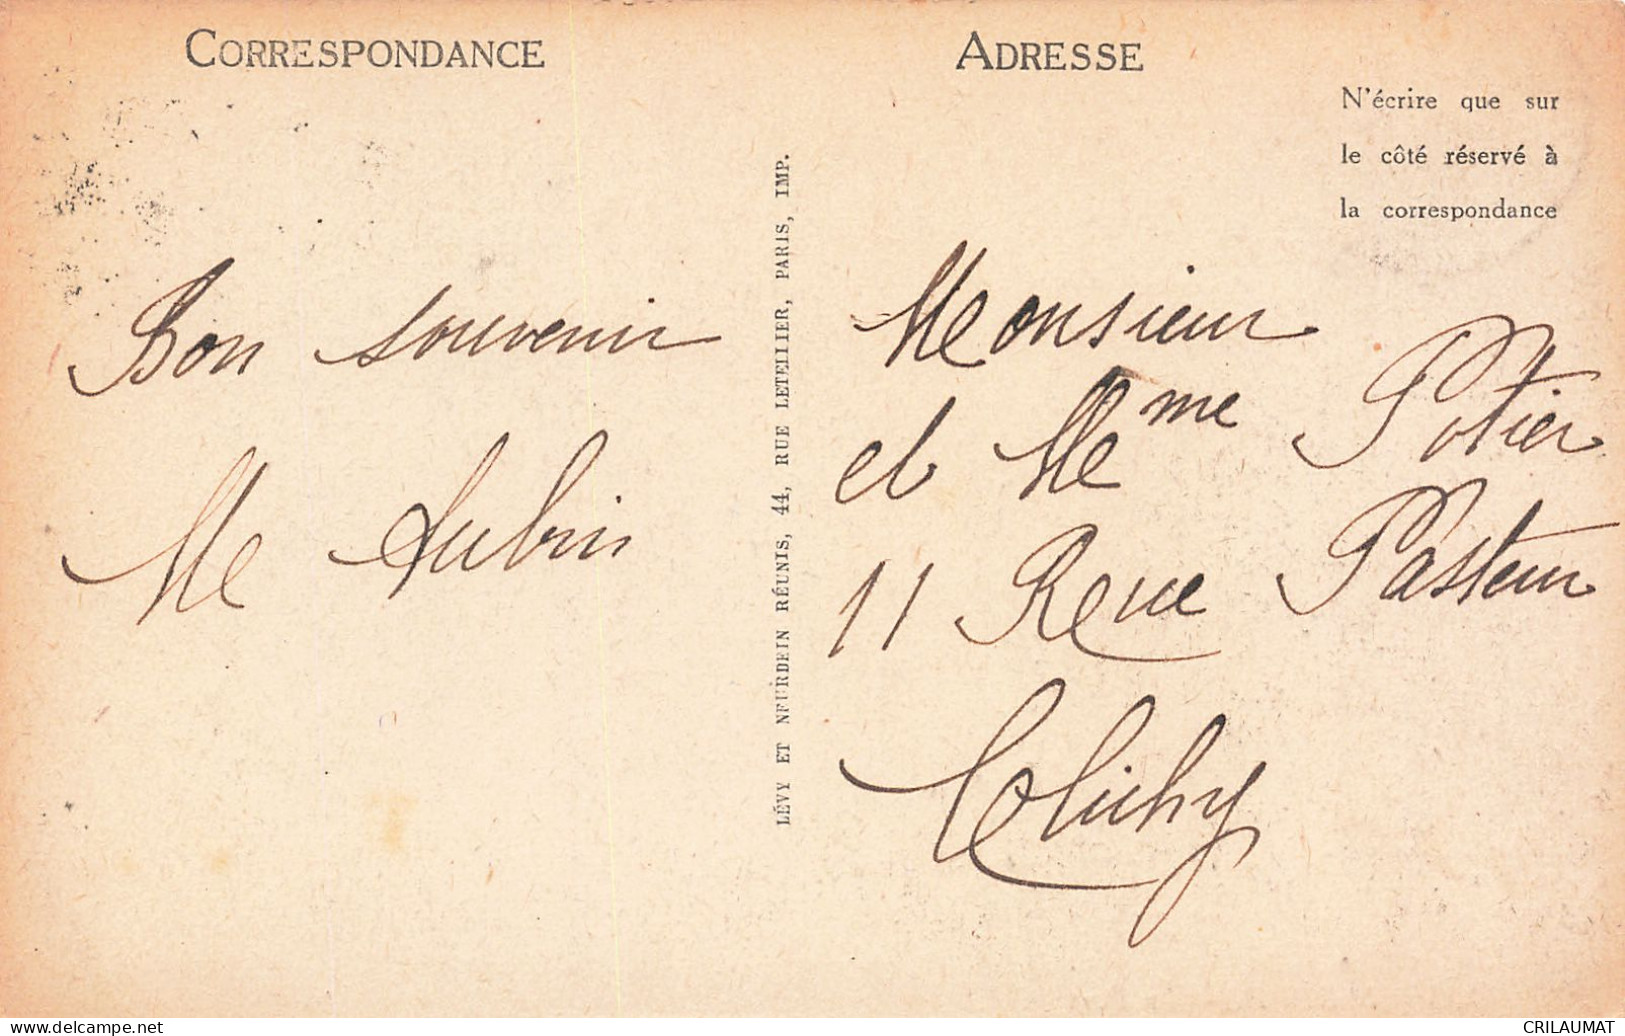 CORRESPONDANCE
Bon souvenir
M Aubin
LÉVY ET NEURDEIN RÉUNIS, 44, RUE LETELLIER, PARIS, IMP.
ADRESSE
N'écrire que sur
le côté réservé à
la correspondance
Monsieur
et Mme Potier
11 Rue Pasteur
Clichy
www.delcampe.net
CRILAUMAT